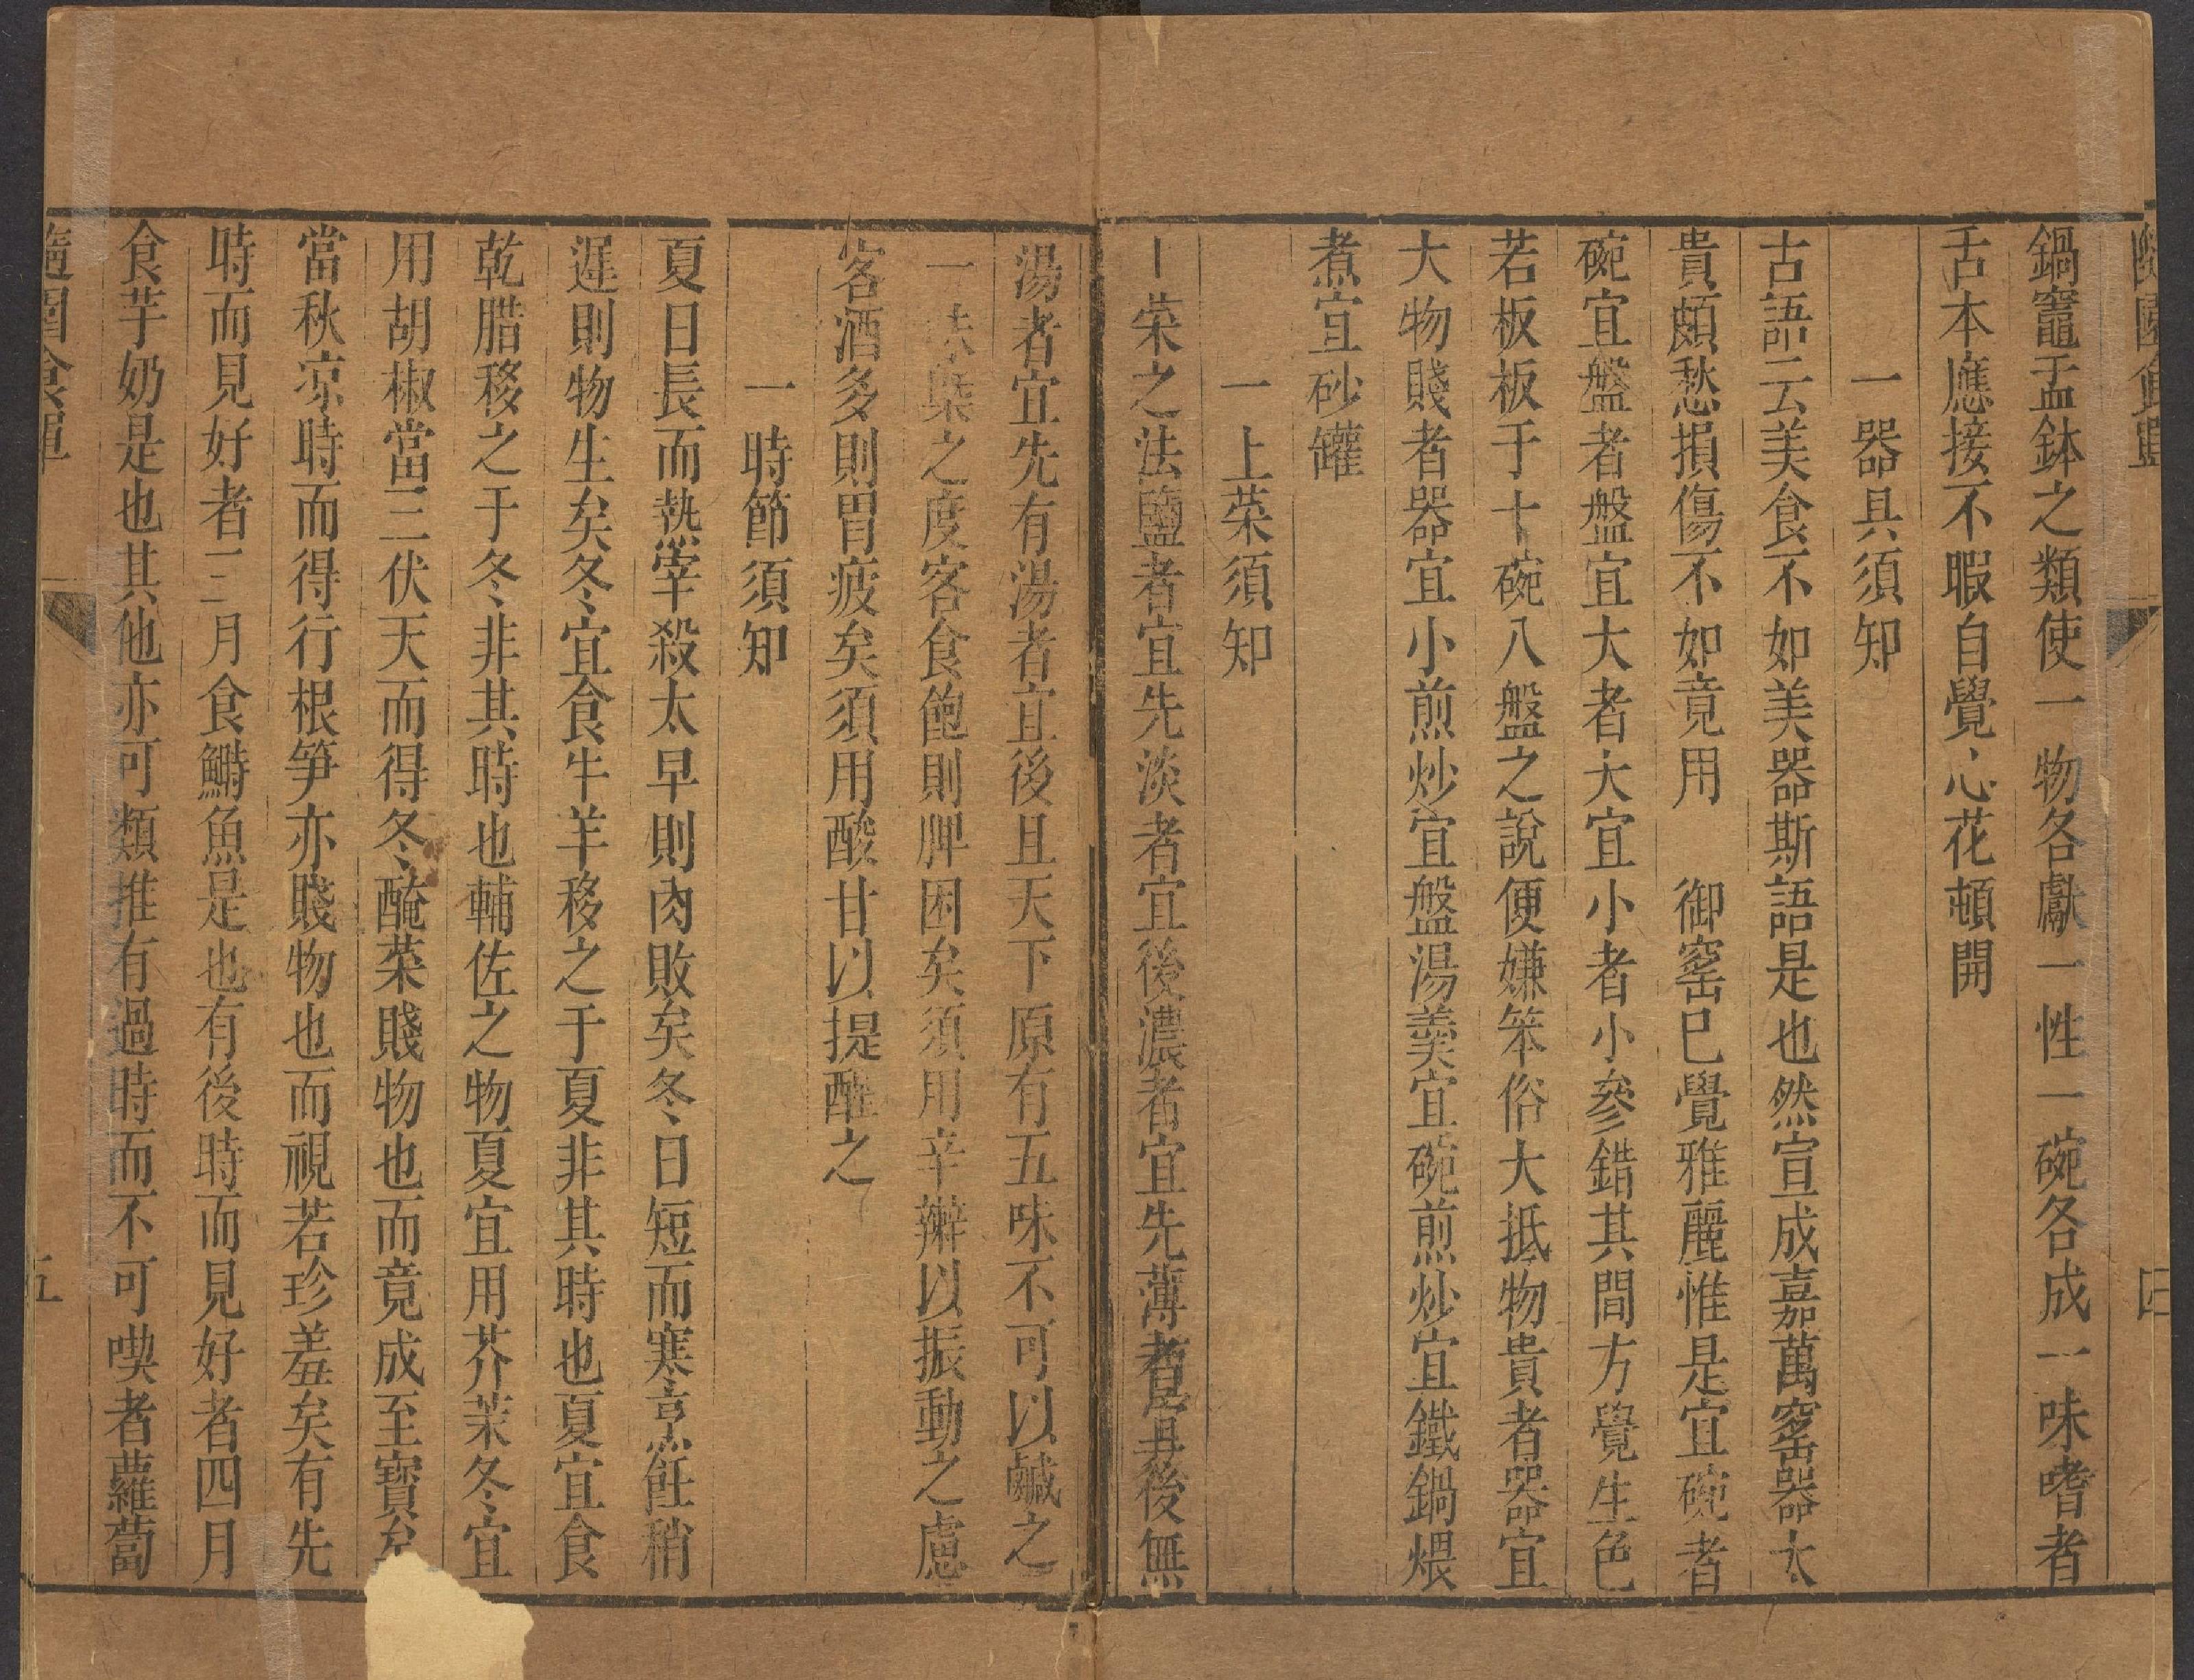 隨園食單
四
鍋竈盂鉢之類使一物各獻一性一碗各成一味嗜者
舌本應接不暇自覺心花頓開
一器具須知
古語云美食不如美器斯語是也然宣成嘉萬窰器太
貴頗愁損傷不如竟用　御窰已覺雅麗惟是宜碗者
碗宜盤者盤宜大者大宜小者小參錯其間方覺生色
若板板于十碗八盤之說便嫌笨俗大抵物貴者器宜
大物賤者器宜小煎炒宜盤湯羹宜碗煎炒宜鐵鍋煨
煮宜砂罐
一上菜須知
上菜之法鹽者宜先淡者宜後濃者宜先薄者宜後無
湯者宜先有湯者宜後且天下原有五味不可以鹹之
一味槩之度客食飽則脾困矣須用辛辣以振動之慮
客酒多則胃疲矣須用酸甘以提醒之
一時節須知
夏日長而熱宰殺太早則肉敗矣冬日短而寒烹飪稍
遲則物生矣冬宜食牛羊移之于夏非其時也夏宜食
乾腊移之于冬非其時也輔佐之物夏宜用芥茉冬宜
用胡椒當三伏天而得冬醃菜賤物也而竟成至寶矣
當秋凉時而得行根笋亦賤物也而視若珍羞矣有先
時而見好者三月食鰣魚是也有後時而見好者四月
食芋奶是也其他亦可類推有過時而不可喫者蘿蔔
隨園食單
五